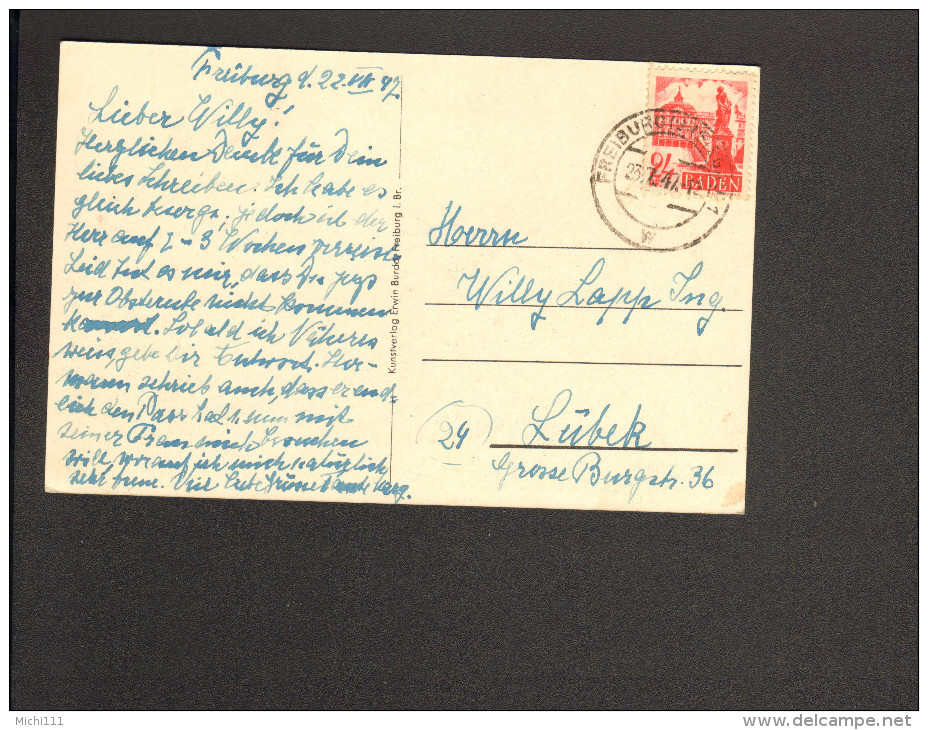 Freiburg d. 22. VII 47.
Lieber Willy!
Herzlichen Danke für Dein
liebes Schreiben. Ich habe es
gleich besorgt, jedoch ist der
Herr auf 2-3 Wochen verreist
Leid tut es mir, dass Du
zur Obsternte nicht kommen
kannst. Sobald ich Näheres
weiss, gebe Dir Antwort. Her-
mann schrieb auch, dass er end-
lich den Pass hat u. nun mit
seiner Frau mich besuchen
will, worauf ich mich
sehr freue. Viel liebe Grüsse Tante
Kunstverlag Erwin Burda, Freiburg i. Br.
FREIBURG
23.7.47
24
BADEN
Herrn
Willy Lapp Ing.
(24) Lübek
Grosse Burgstr. 36
Michi111
http://www.delcampe.net